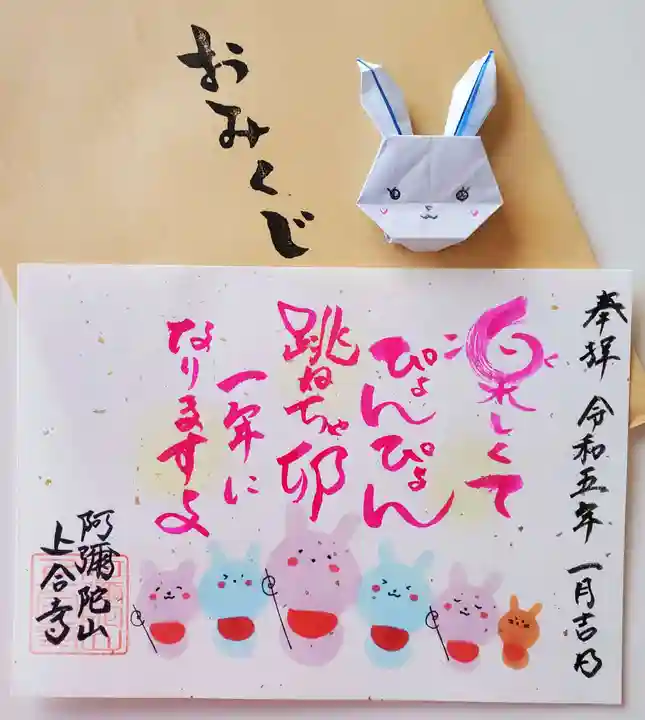 おみくじ
奉拝 令和五年 一月吉日
楽しくて
ぴょんぴょん
跳ねちゃ卯
一年に
なりますよ
阿彌陀山
上合寺